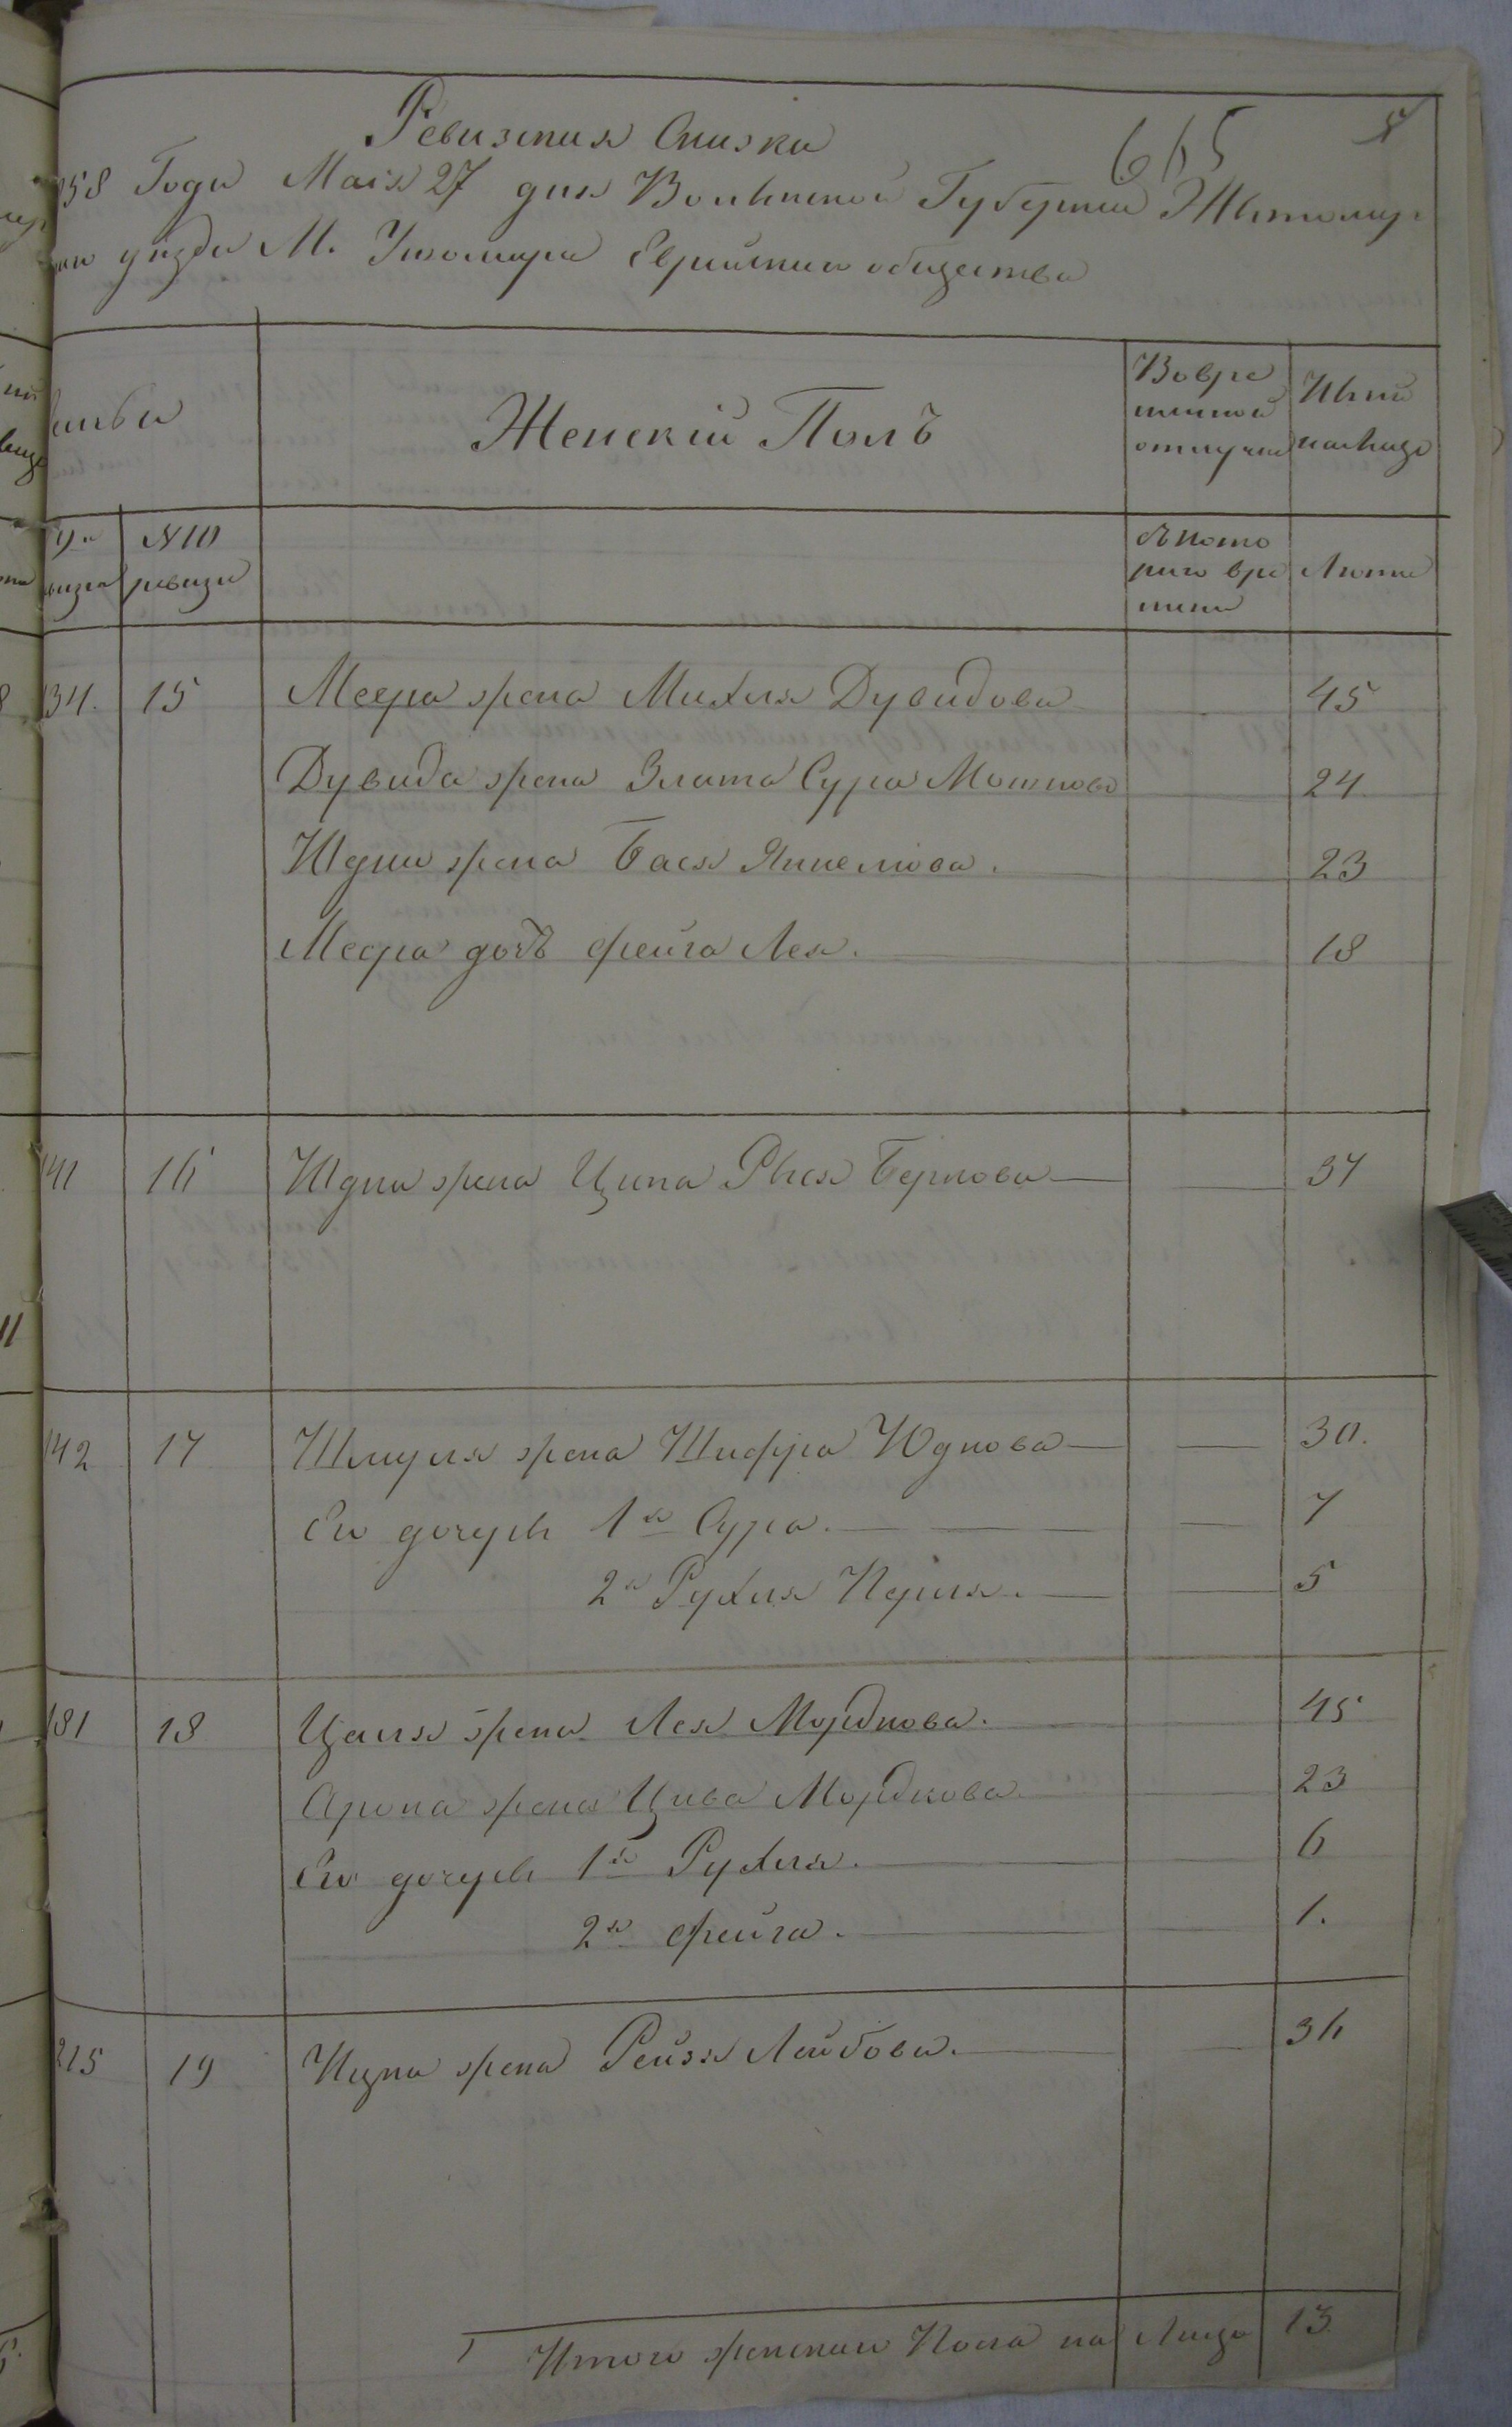 Ревизская Сказка
665
58 Года Маія 27 дня Волынской Губерніи Житомир
уѣзда М. Ушомира Еврейскаго общества
Женскій Полъ
Во вре
менной
отлучке
Ныне
налицо
№ 10
ревизи
съ кото
раго вре
мени
Лета
134. 15 Меера жена Михля Дувидова 45
Дувида жена Злата Сура Мошкова 24
Юдки жена Бася Янкелиова. 23
Меера дочь Фейга Лея. 18
141 16 Юдки жена Ципа Рыся Беркова 37
142 17 Шмуля жена Шифра Юдкова 30.
Ео дочеры 1я Сура. 7
2я Рухля Перля. 5
181 18 Цаля жена Лея Мордкова. 45
Арона жена Цива Мордкова 23
Ео дочеры 1я Рухля. 6
2я Фейга. 1.
215 19 Ицка жена Рейзя Лейбова. 36
Итого женскаго Пола на Лицо 13